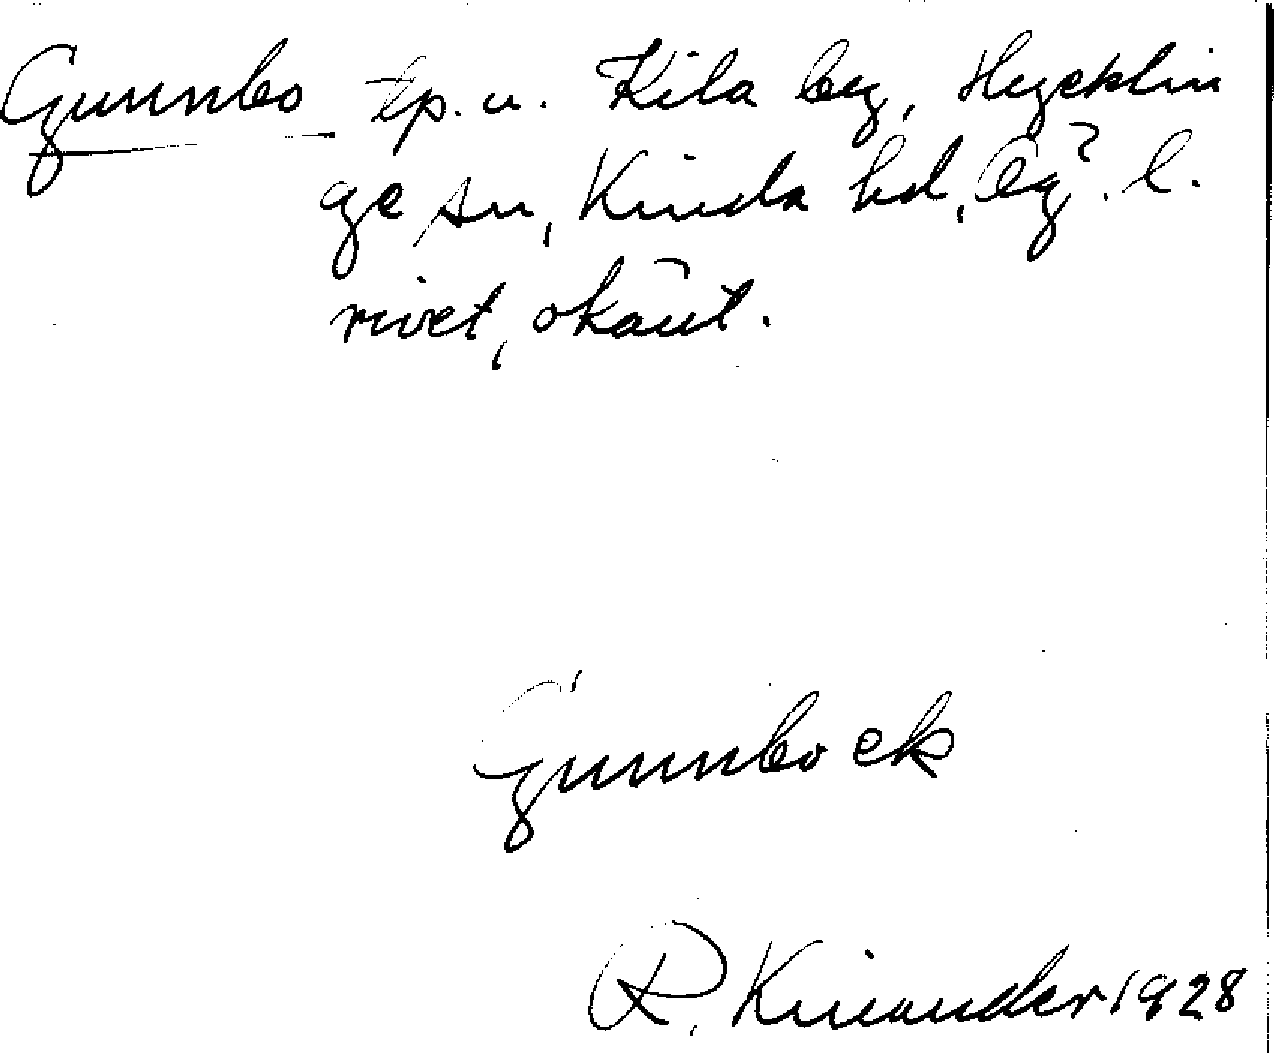 Gunnbo tp. u. Kila by, Hycklin
ge sn, Kinda hd, Ög? l.
rivet, okänt.
Gunnbo ek
R. Kinander 1928